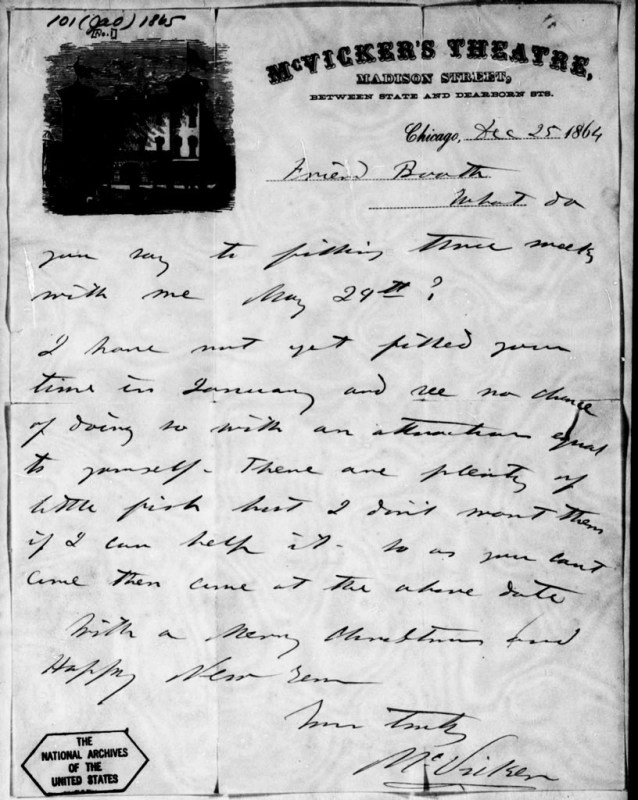 101 (JAO) 1865
[No. 1]
McVICKER'S THEATRE,
MADISON STREET,
BETWEEN STATE AND DEARBORN STS.
Chicago, Dec 25 1864
Friend Booth
What do
you say to filling three weeks
with me May 29th?
I have not yet filled your
time in January and see no chance
of doing so with an attraction equal
to yourself - There are plenty of
little fish but I don't want them
if I can help it - So as you cant
come then come at the above date
With a Merry Christmas and
Happy New Year
Yours Truly
McVicker
THE
NATIONAL ARCHIVES
OF THE
UNITED STATES